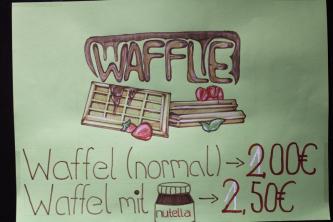 WAFFLE
Waffel (normal) → 2,00€
Waffel mit nutella → 2,50€